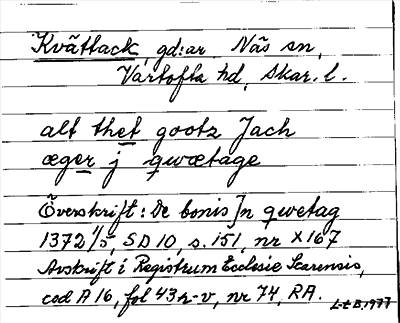 Kvättack, gd:ar Näs sn,
Vartofta hd, Skar. l.
alt thet gootz Jach
æger j qwætage
Överskrift: De bonis Jn qwetag
1372 1/5, SD 10, s. 151, nr X 167
Avskrift i Registrum Ecclesie Scarensis,
cod A 16, fol 43 r-v, nr 74, RA.
L-E B, 1977